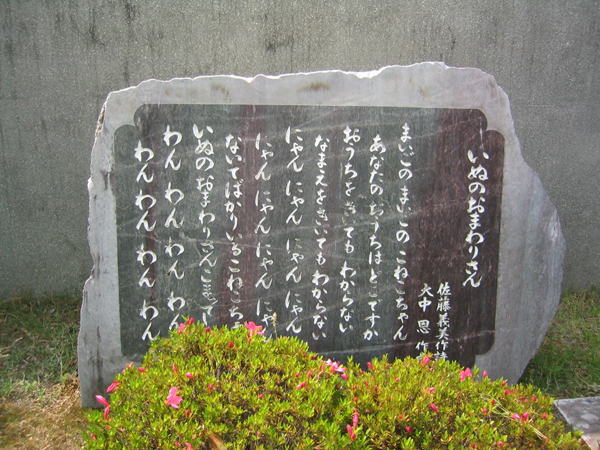 いぬのおまわりさん
佐藤義美 作詩
大中 恩 作
まいごの まいごの こねこちゃん
あなたの おうちは どこですか
おうちを きいても わからない
なまえを きいても わからない
にゃん にゃん にゃん にゃん
にゃん にゃん にゃん にゃん
ないてばかりいる こねこち
いぬの おまわりさん こま
わん わん わん わん
わん わん わん わん